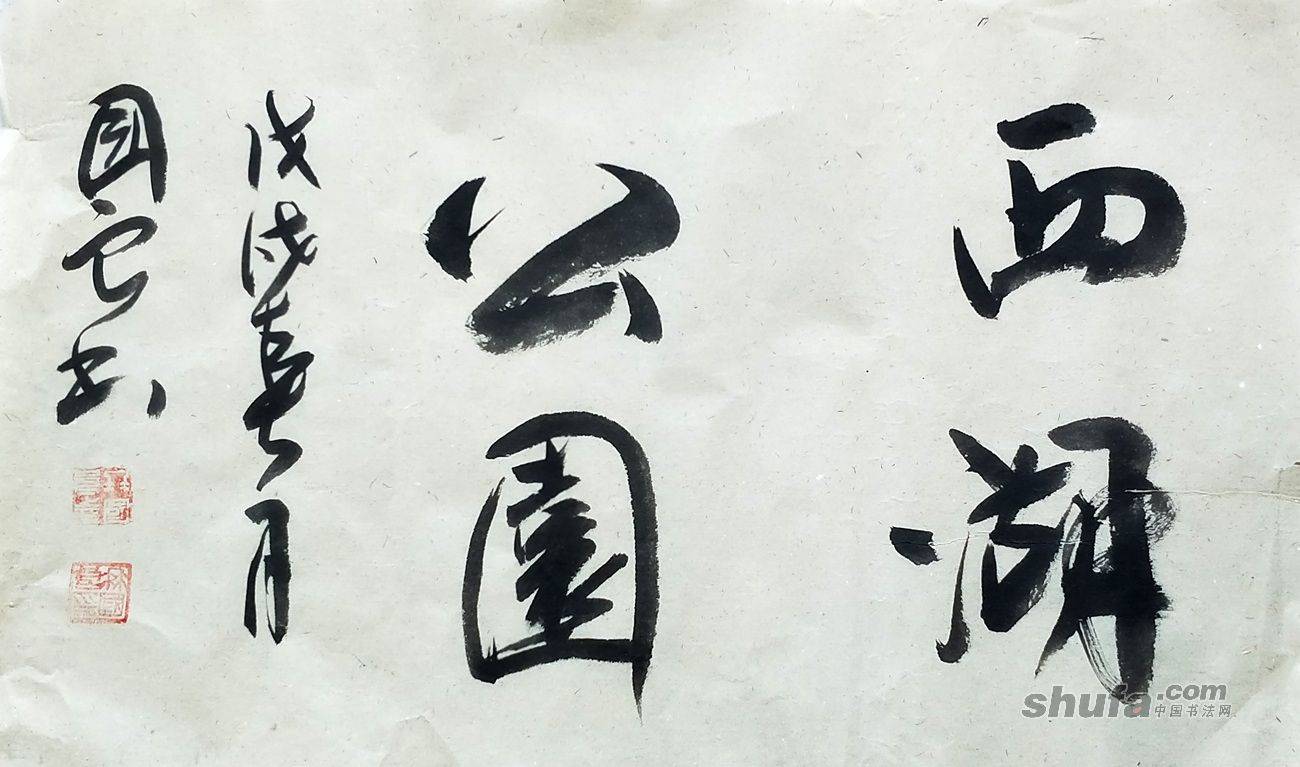 西湖
公園
戊戌春月
國云书
shufa.com
中国书法网